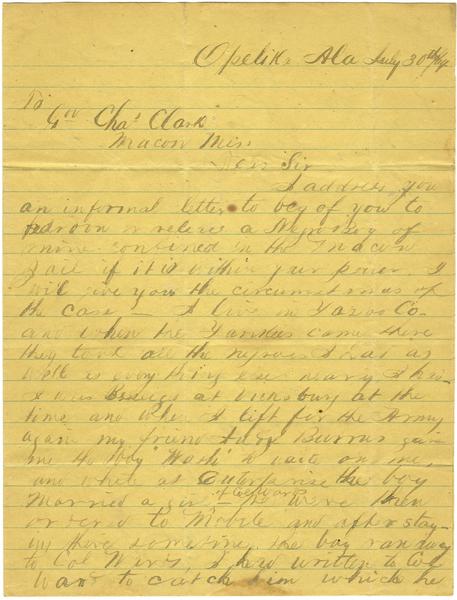 Opelika Ala July 30th/64
To
Gov Chas Clark
Macon Miss
Dear Sir
I address you
an informal letter to beg of you to
pardon or release a Negro boy of
mine confined in the Macon
Jail if it is within your power. I
will give you the circumstances of
the case — I live in Yazoo Co
and when the Yankees came there
they took all the negroes I had as
well as everything else nearly I
I was Besieged at Vicksburg at the
time and when I left for the Army
again my friend Burrus gave
me the boy "Wash" to wait on me,
and while at Enterprise the boy
married a girl of Col Wards we were then
ordered to Mobile and after stay-
ing there sometime the boy ran away
to Col Wards, I had written to Col
Ward to catch him which he